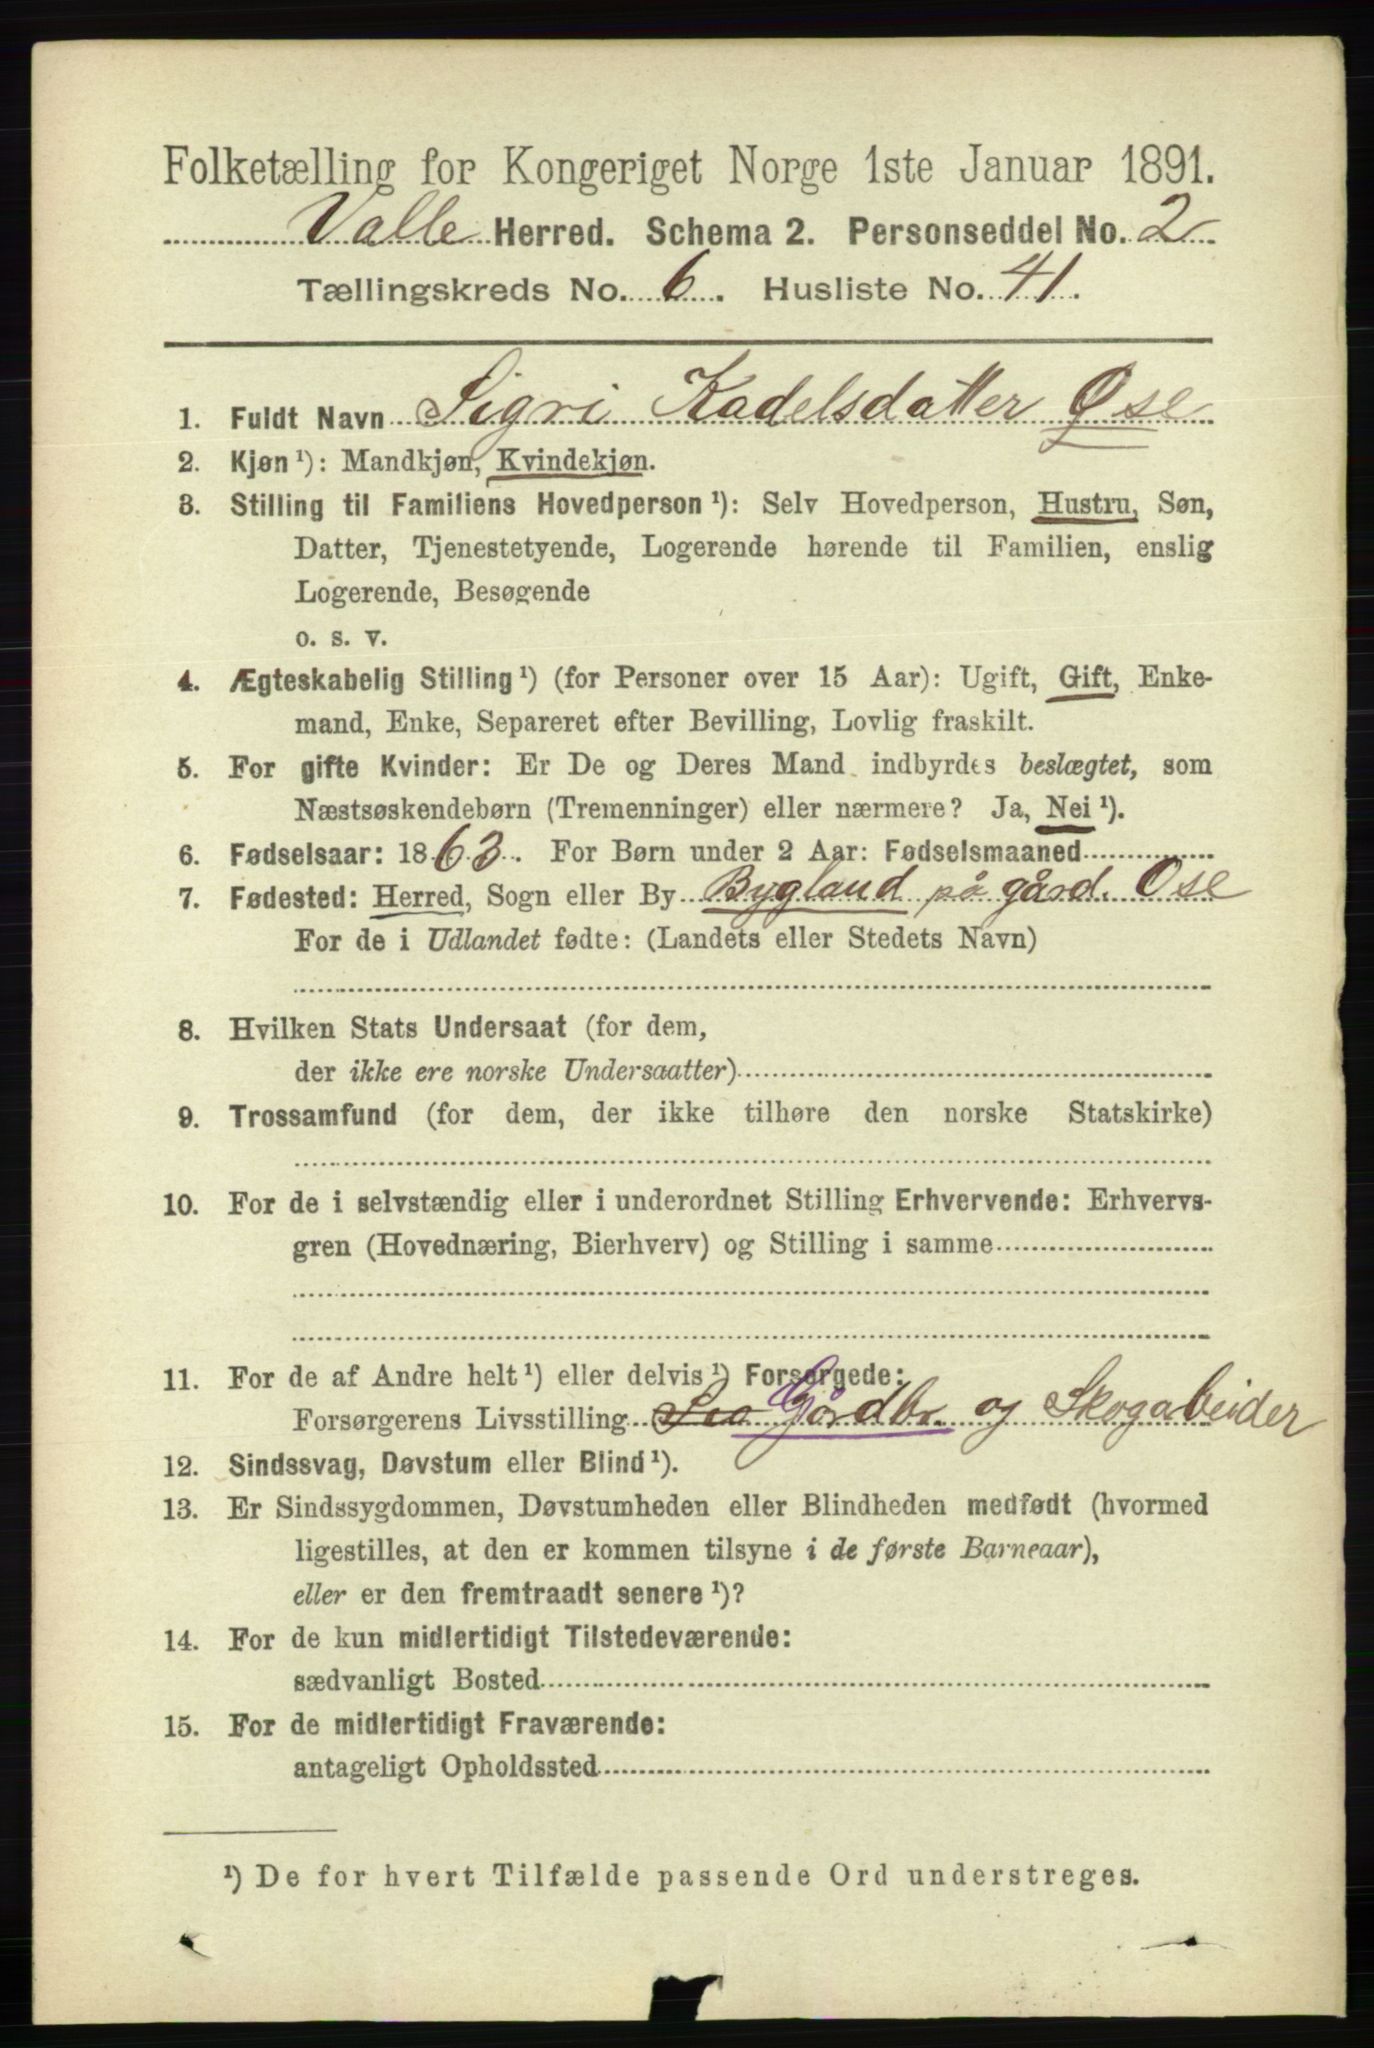 Folketælling for Kongeriget Norge 1ste Januar 1891.
Valle Herred. Schema 2. Personseddel No. 2
Tællingskreds No. 6. Husliste No. 41.
1. Fuldt Navn Sigri Kadelsdatter Ose
2. Kjøn ¹): Mandkjøn, Kvindekjøn.
3. Stilling til Familiens Hovedperson ¹): Selv Hovedperson, Hustru, Søn,
Datter, Tjenestetyende, Logerende hørende til Familien, enslig
Logerende, Besøgende
o. s. v.
4. Ægteskabelig Stilling ¹) (for Personer over 15 Aar): Ugift, Gift, Enke-
mand, Enke, Separeret efter Bevilling, Lovlig fraskilt.
5. For gifte Kvinder: Er De og Deres Mand indbyrdes beslægtet, som
Næstsøskendebørn (Tremenninger) eller nærmere? Ja, Nei ¹).
6. Fødselsaar: 1863. For Børn under 2 Aar: Fødselsmaaned
7. Fødested: Herred, Sogn eller By Bygland på gård. Ose
For de i Udlandet fødte: (Landets eller Stedets Navn)
8. Hvilken Stats Undersaat (for dem,
der ikke ere norske Undersaatter)
9. Trossamfund (for dem, der ikke tilhøre den norske Statskirke)
10. For de i selvstændig eller i underordnet Stilling Erhvervende: Erhvervs-
gren (Hovednæring, Bierhverv) og Stilling i samme
11. For de af Andre helt ¹) eller delvis ¹) Forsørgede:
Forsørgerens Livsstilling Gårdbr. og Skogabeider
12. Sindssvag, Døvstum eller Blind ¹).
13. Er Sindssygdommen, Døvstumheden eller Blindheden medfødt (hvormed
ligestilles, at den er kommen tilsyne i de første Barneaar),
eller er den fremtraadt senere ¹)?
14. For de kun midlertidigt Tilstedeværende:
sædvanligt Bosted
15. For de midlertidigt Fraværende:
antageligt Opholdssted
¹) De for hvert Tilfælde passende Ord understreges.